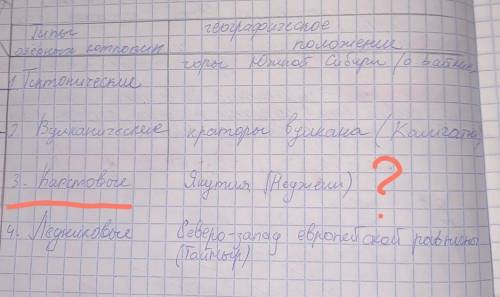 Типы географическое
озерных котловин положение
1. Тектонические горы Южной Сибири (о Байкал
2. Вулканические краторы вулкана (Камчатка)
3. Карстовые Якутия (Неджели) ?
4. Ледниковые Северо-запад европейской равнины
(Таймыр)